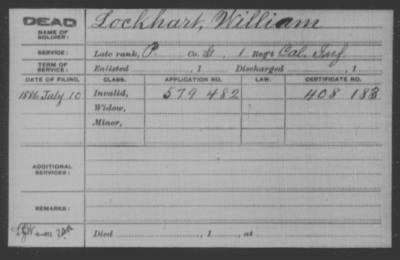 DEAD
NAME OF SOLDIER:
Lockhart, William
SERVICE:
Late rank, P. Co. G, 1 Reg't Cal. Inf.
TERM OF SERVICE:
Enlisted , 1 Discharged , 1
DATE OF FILING. CLASS. APPLICATION NO. LAW. CERTIFICATE NO.
1886 July 10 Invalid, 579 482 408 183
Widow,
Minor,
ADDITIONAL SERVICES:
REMARKS:
Died , 1 , at